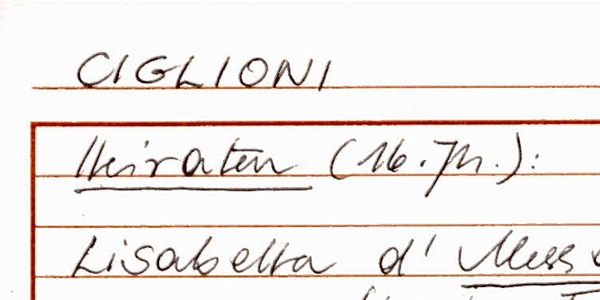 CIGLIONI
Heiraten (16. Jh.):
Lisabetta d' Mess